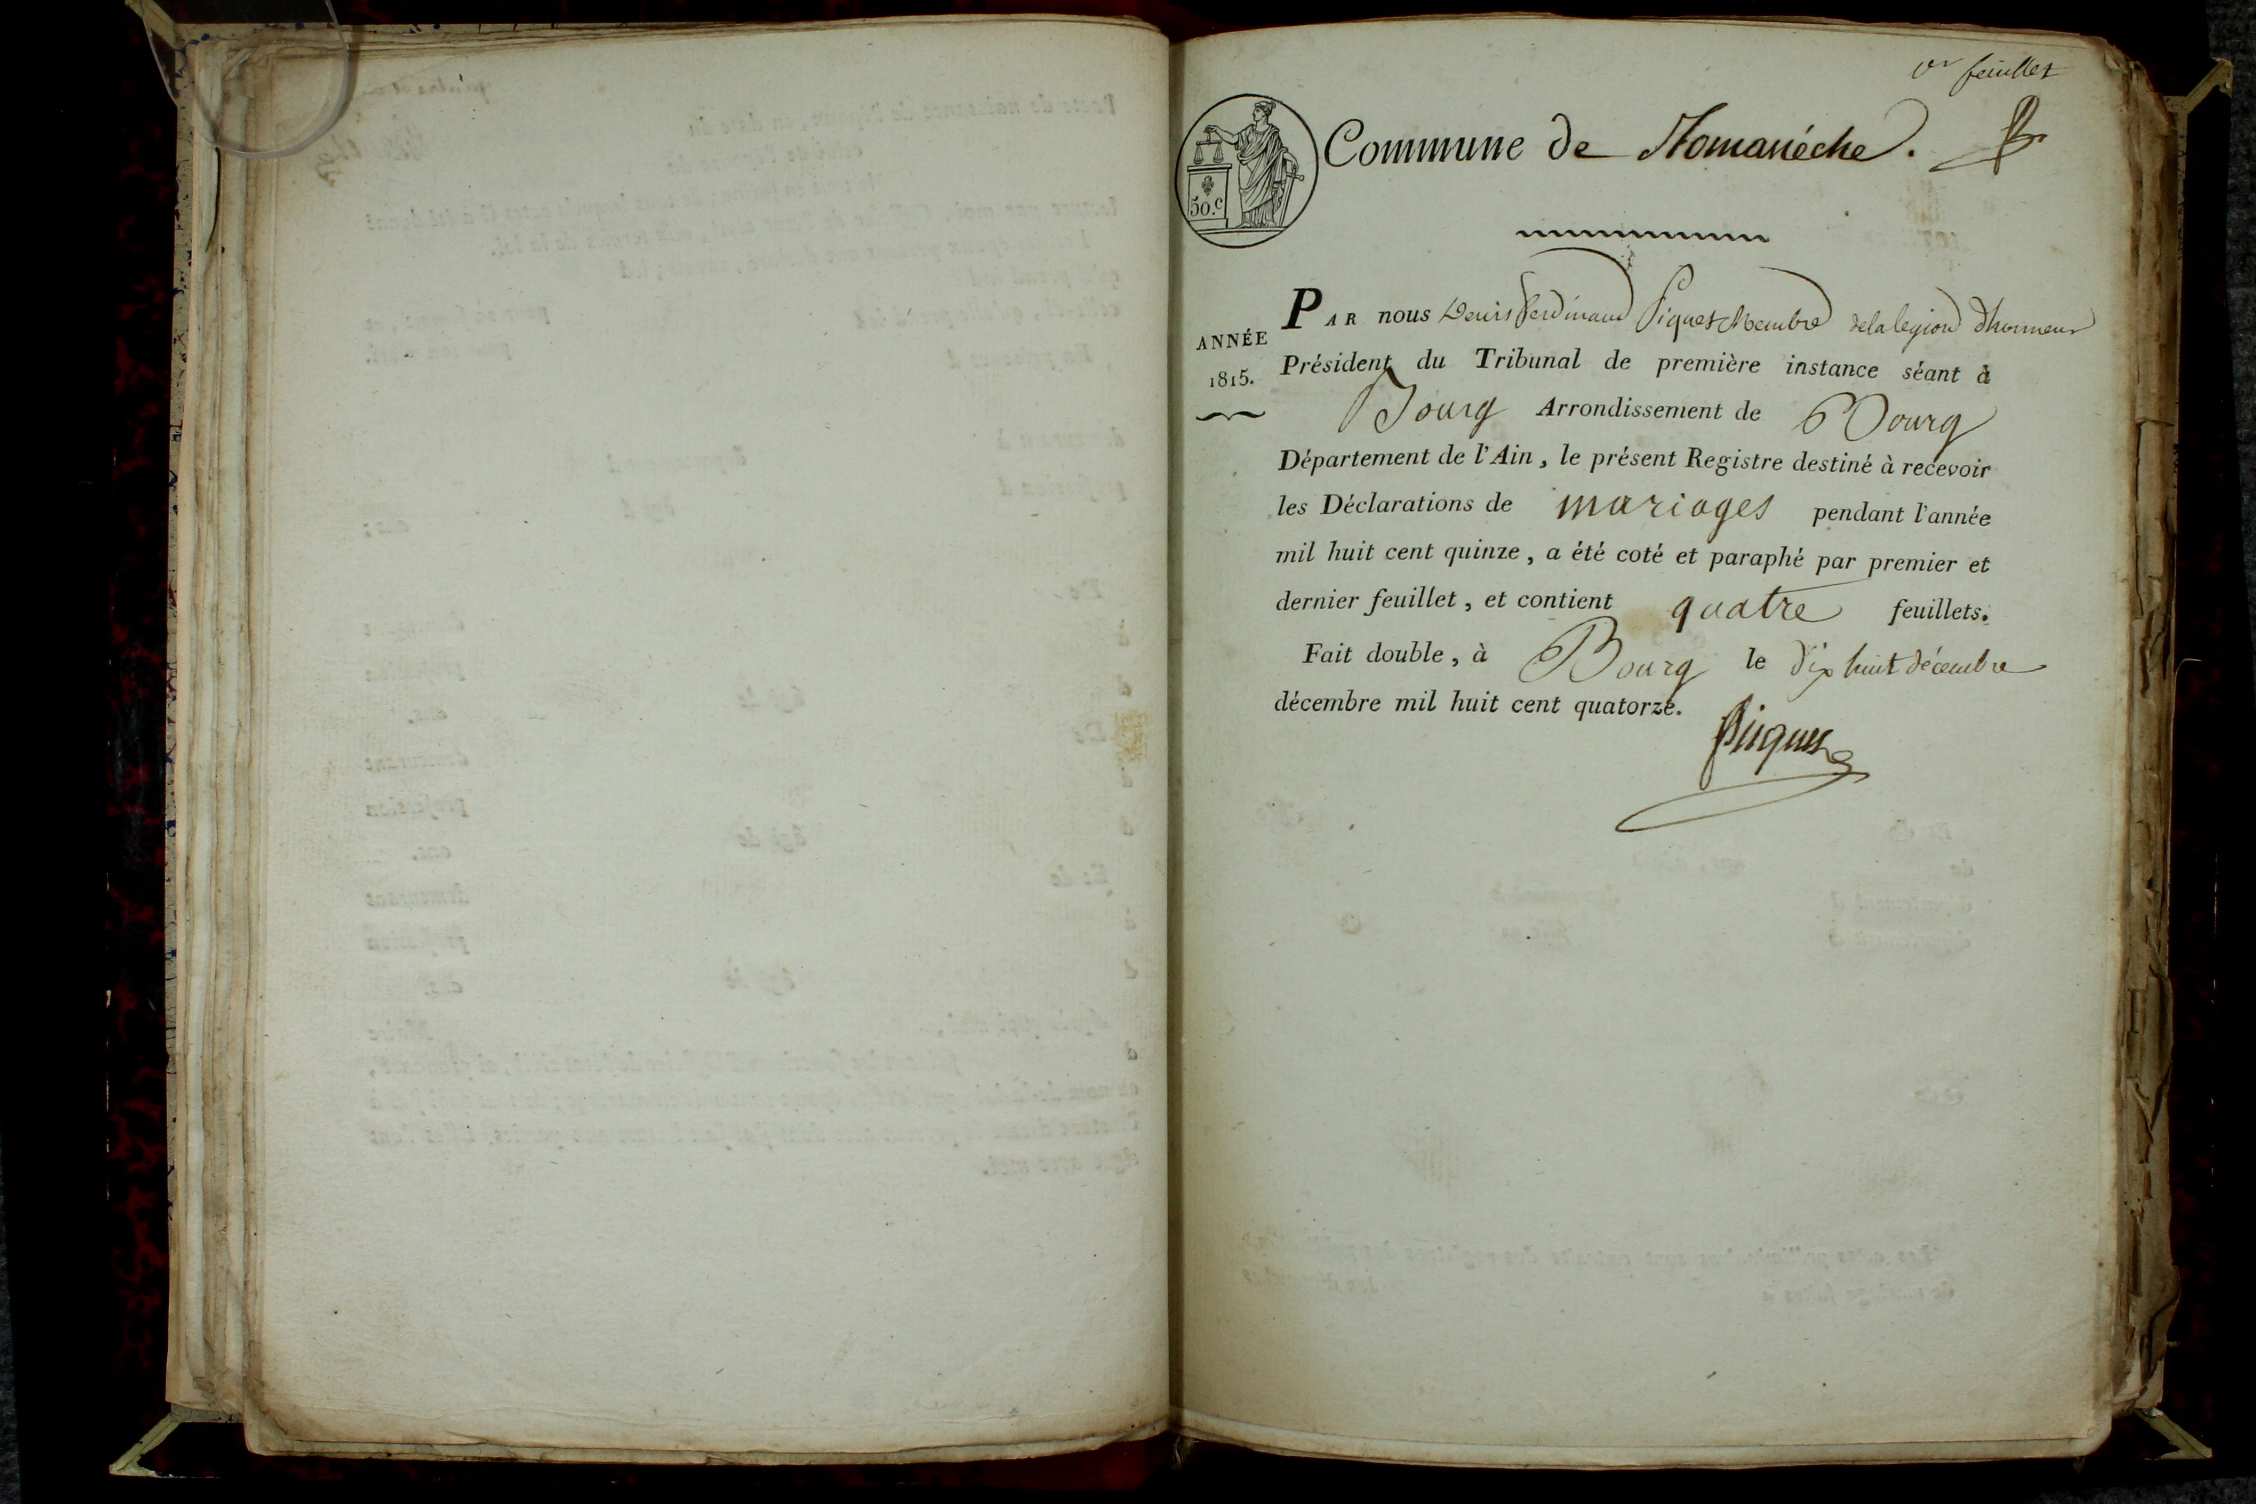 1er feuillet
Commune de Romanéche.
50.c
PAR nous Denis ferdinand Piquet Membre de la legion dhonneur
ANNÉE
1815.
Président du Tribunal de première instance séant à
Bourg Arrondissement de Bourg
Département de l'Ain, le présent Registre destiné à recevoir
les Déclarations de mariages pendant l'année
mil huit cent quinze, a été coté et paraphé par premier et
dernier feuillet, et contient quatre feuillets.
Fait double, à Bourg le dix huit décembre
décembre mil huit cent quatorze.
Piquet